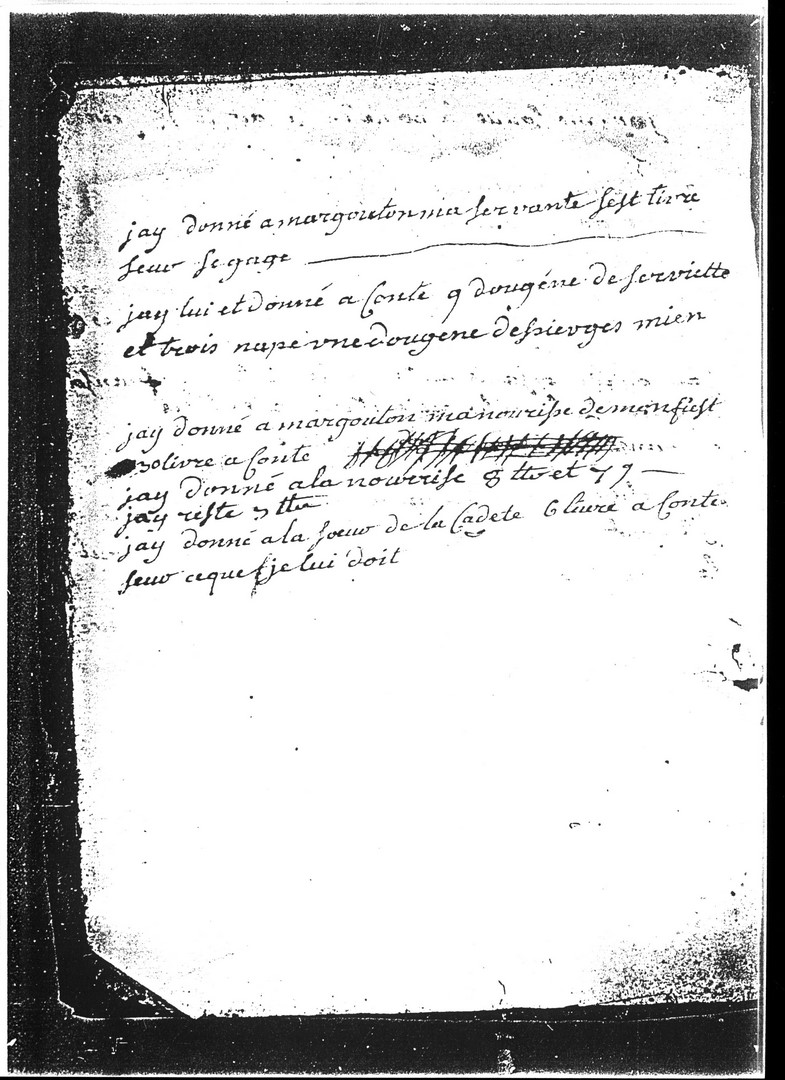 jay donné a margoutonma servante sest livre
seur segage
jay lui et donné a Conte 9 dougéne de serviette
et trois nape vne dougene desierges mien
jay donné a margouton manourisse demonfist
30 livre a Conte
jay donné ala nourrise 8 ₶ et 7 s
jay reste 3 ₶
jay donné ala sœur de la Cadete 6 livre a Conte
seur ceque je lui doit